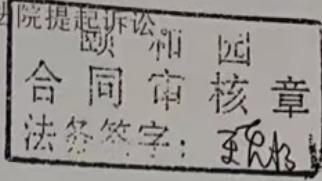 院提起诉讼。
颐和园
合同审核章
法务签字：